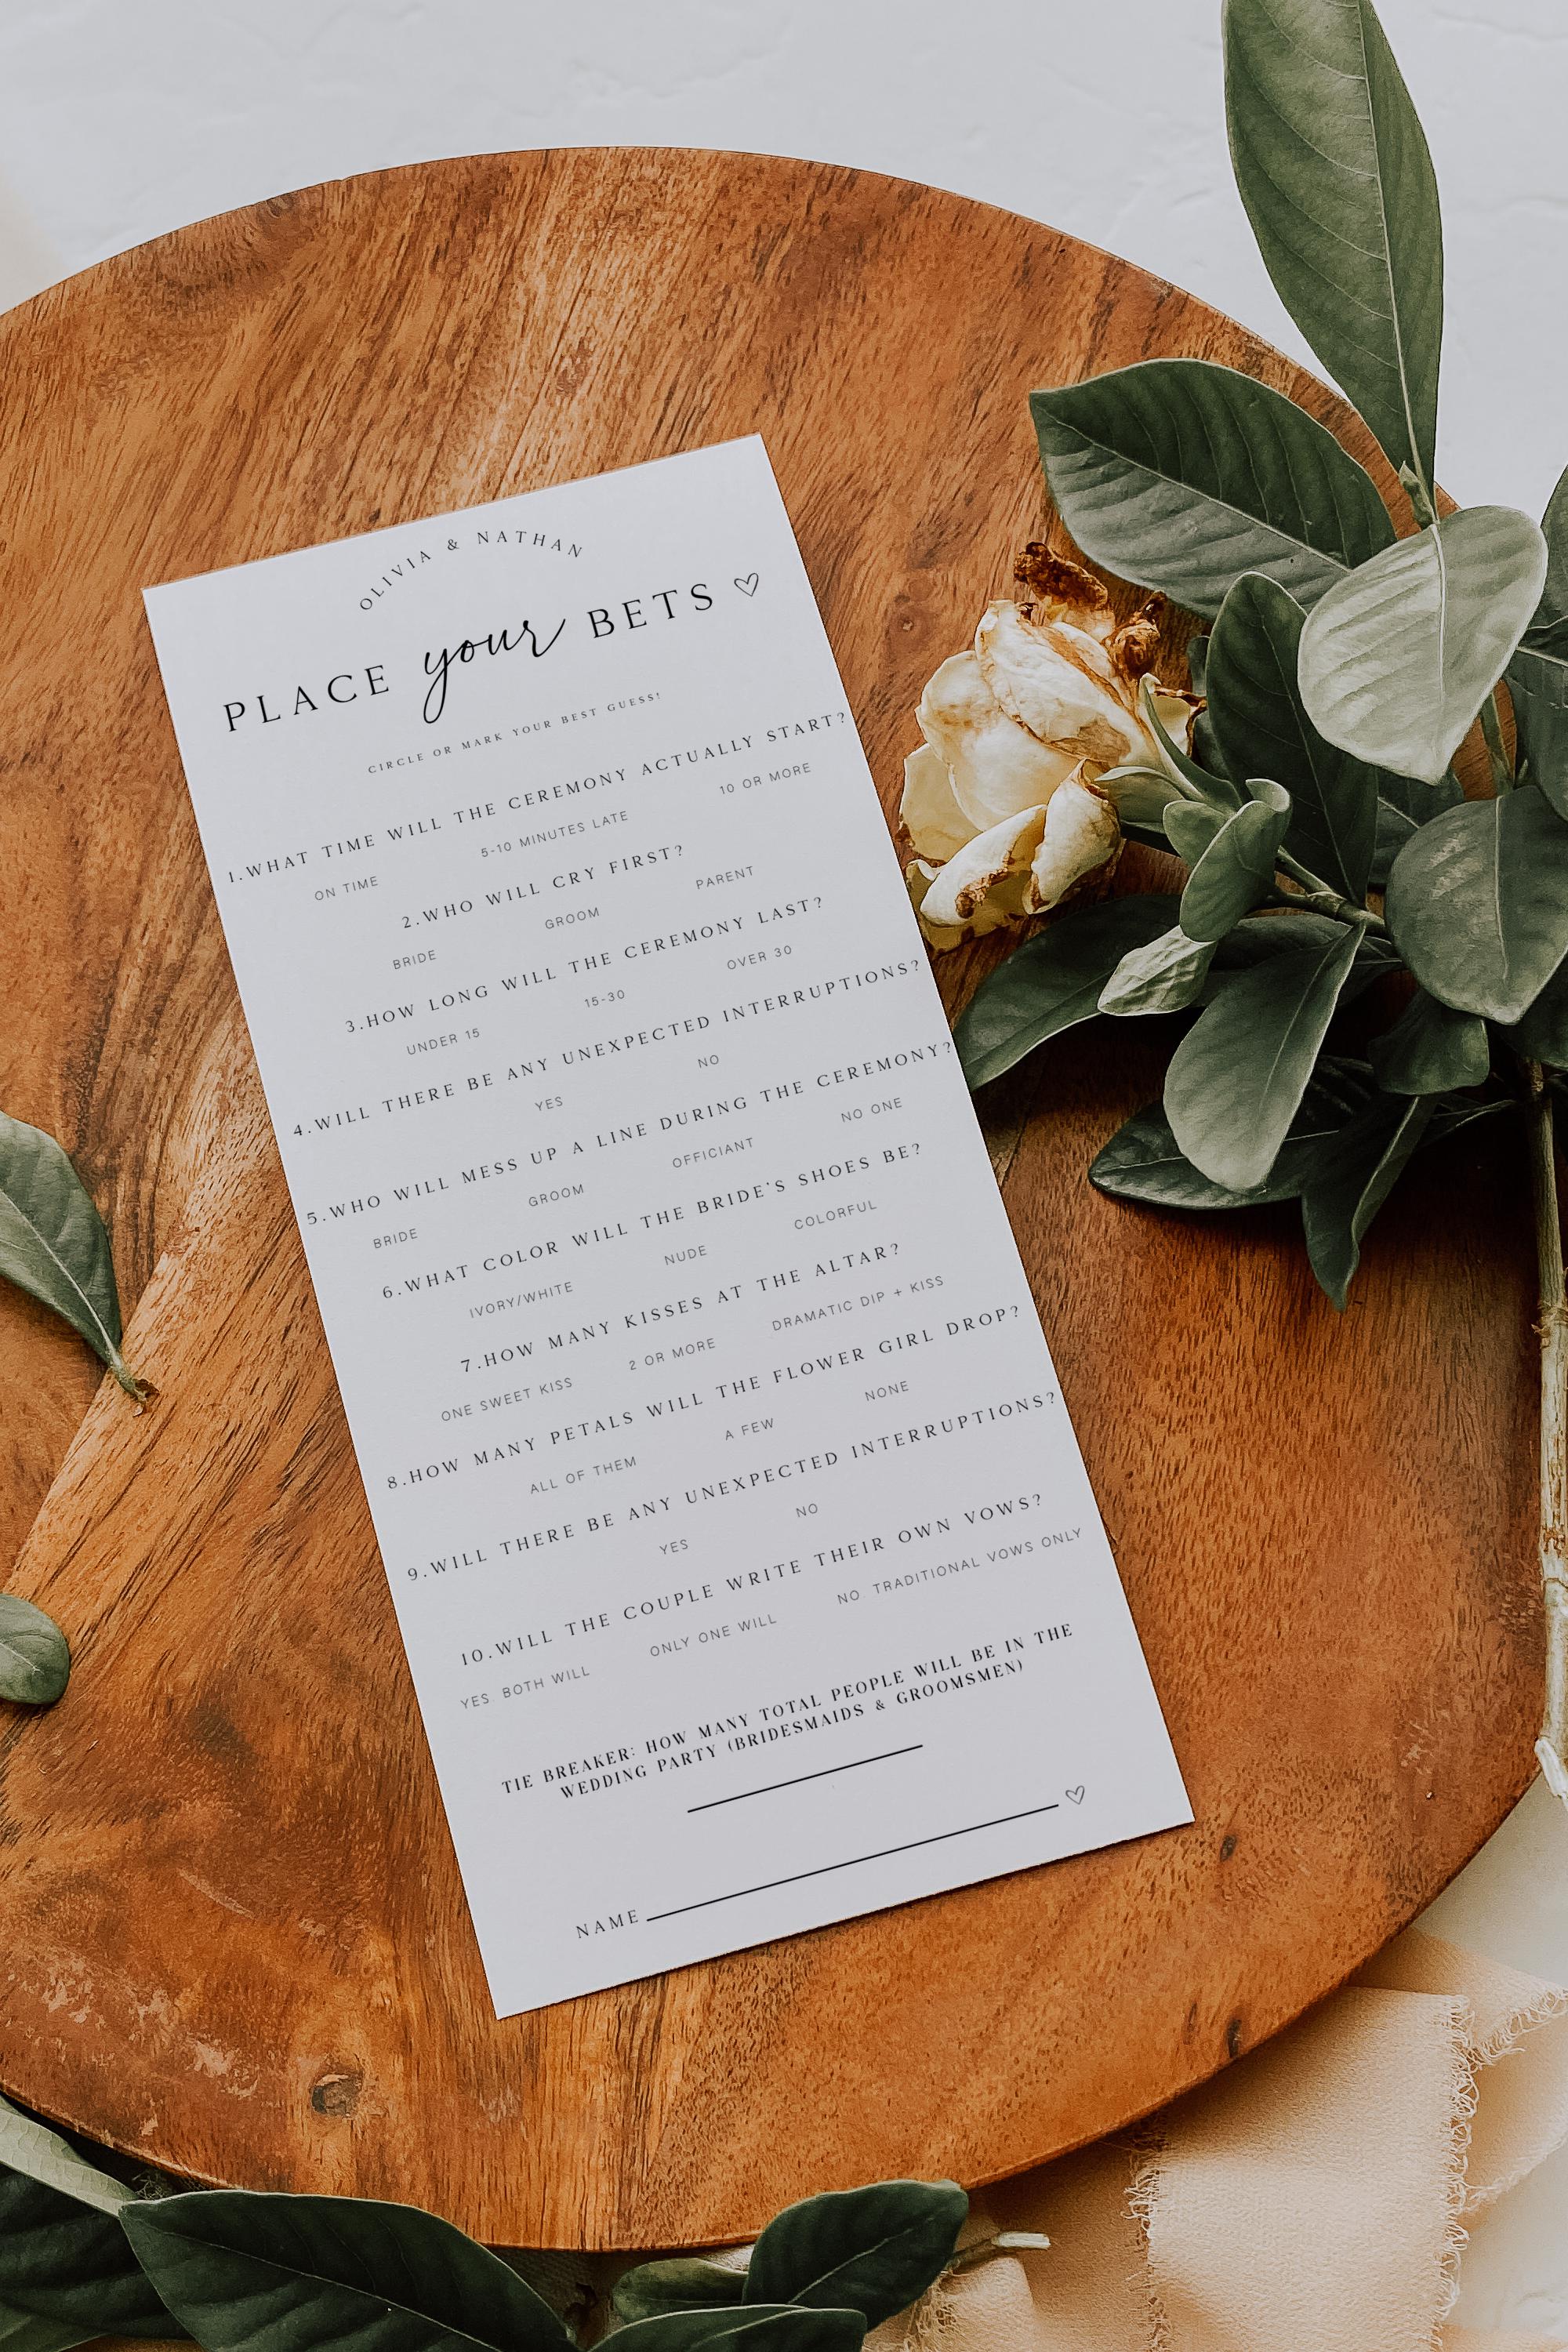 OLIVIA & NATHAN
PLACE your BETS ♡
CIRCLE OR MARK YOUR BEST GUESS!
1.WHAT TIME WILL THE CEREMONY ACTUALLY START?
ON TIME 5-10 MINUTES LATE 10 OR MORE
2.WHO WILL CRY FIRST?
BRIDE GROOM PARENT
3.HOW LONG WILL THE CEREMONY LAST?
UNDER 15 15-30 OVER 30
4.WILL THERE BE ANY UNEXPECTED INTERRUPTIONS?
YES NO
5.WHO WILL MESS UP A LINE DURING THE CEREMONY?
BRIDE GROOM OFFICIANT NO ONE
6.WHAT COLOR WILL THE BRIDE'S SHOES BE?
IVORY/WHITE NUDE COLORFUL
7.HOW MANY KISSES AT THE ALTAR?
ONE SWEET KISS 2 OR MORE DRAMATIC DIP + KISS
8.HOW MANY PETALS WILL THE FLOWER GIRL DROP?
ALL OF THEM A FEW NONE
9.WILL THERE BE ANY UNEXPECTED INTERRUPTIONS?
YES NO
10.WILL THE COUPLE WRITE THEIR OWN VOWS?
YES, BOTH WILL ONLY ONE WILL NO, TRADITIONAL VOWS ONLY
TIE BREAKER: HOW MANY TOTAL PEOPLE WILL BE IN THE
WEDDING PARTY (BRIDESMAIDS & GROOMSMEN)
NAME ♡